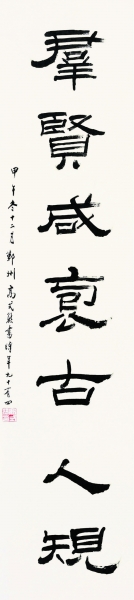 羣賢咸古人規
甲午冬十二月鄞州高式熊書時年九十有四